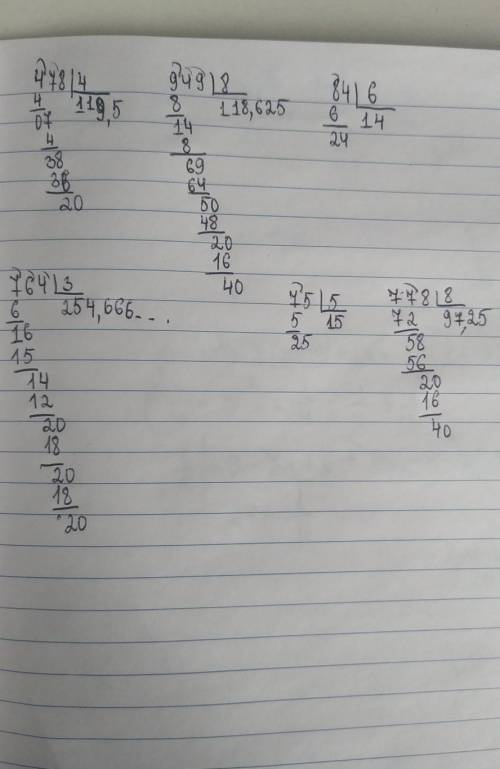 478 | 4
4 119,5
07
4
38
36
20
949 | 8
8 118,625
14
8
69
64
50
48
20
16
40
84 | 6
6 14
24
764 | 3
6 254,666...
16
15
14
12
20
18
20
18
20
75 | 5
5 15
25
778 | 8
72 97,25
58
56
20
16
40